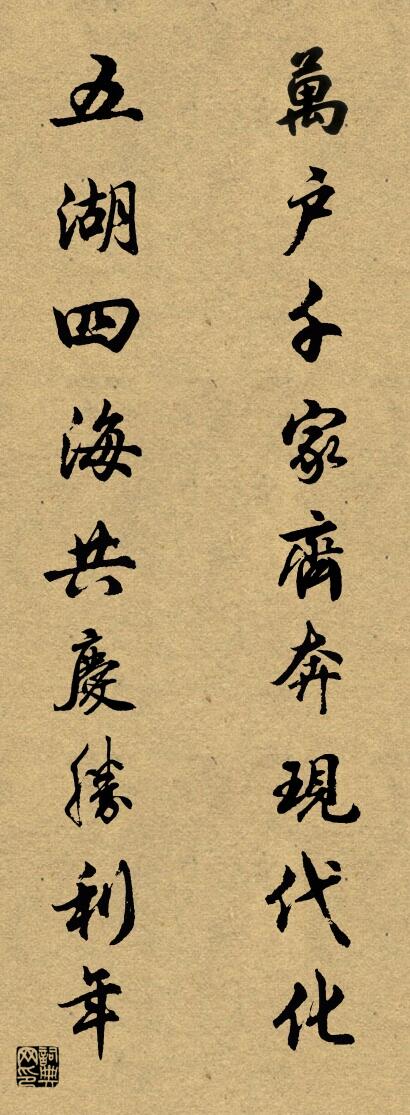 萬户千家齊奔現代化
五湖四海共慶勝利年
詞典
网印